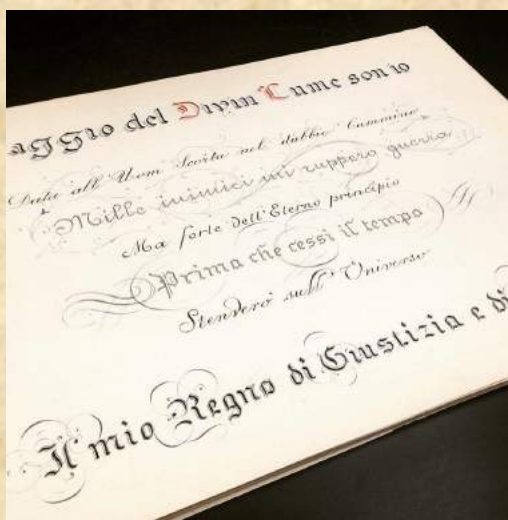 aggio del Divin Lume son io
Data all'Uom Scorta nel dubbio Cammino
Mille inimici mi ruppero guerra
Ma forte dell'Eterno principio
Prima che cessi il tempo
Stenderò sull'Universo
Il mio Regno di Giustizia e di